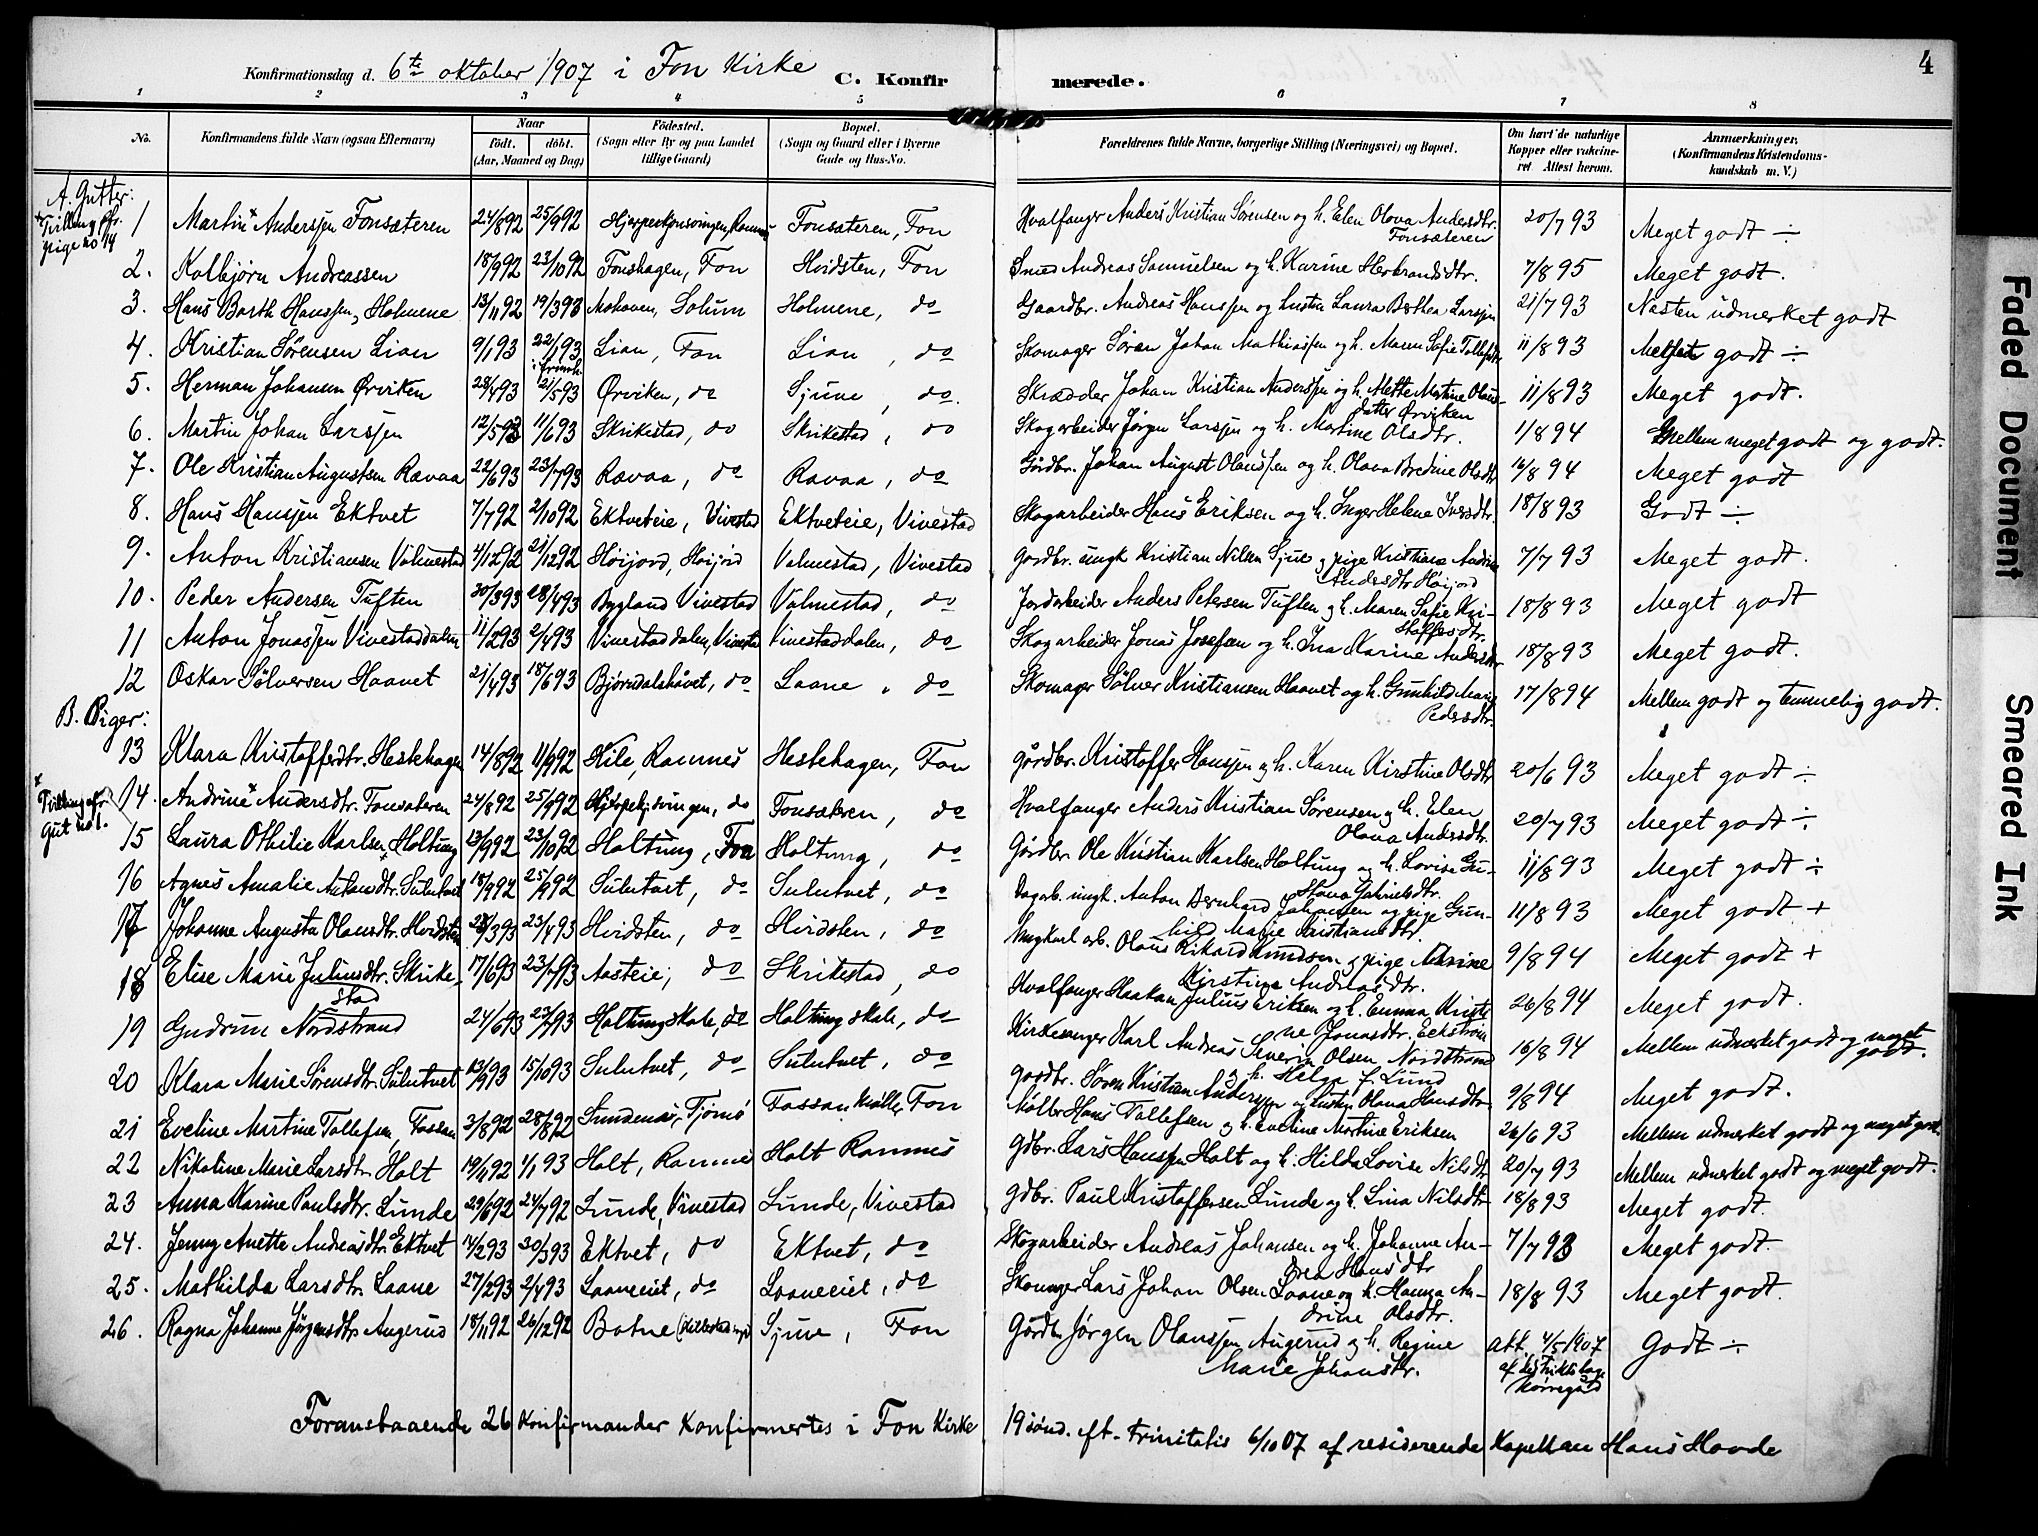 Konfirmationsdag d. 6te oktober 1907 i Fon Kirke C. Konfirmerede. 4
1 2 3 4 5 6 7 8
No. Konfirmandens fulde Navn (ogsaa Efternavn) Naar født. døbt. (Aar, Maaned og Dag) Fødested. (Sogn eller By og paa Landet tillige Gaard) Bopæl. (Sogn og Gaard eller i Byerne Gade og Hus-No. Forældrenes fulde Navne, borgerlige Stilling (Næringsvei) og Bopæl. Om havt de naturlige Kopper eller vakcineret Attest herom. Anmærkninger. (Konfirmandens Kristendomskundskab m. V.)
A. Gutter:
1 Martin Anderssen Fonsæteren 24/8 92 25/9 92 Fonsæteren, Fon Hvalfanger Anders Kristian Sørensen og h. Elen Olava Andersdtr. Fonsæteren 20/7 93 Meget godt ÷
2. Kolbjørn Andreassen 18/9 92 23/10 92 Fonshagen, Fon Hvidsten, Fon Smed Andreas Samuelsen og h. Karine Herbrandsdtr. 7/8 95 Meget godt.
3. Hans Barth Hanssen, Holmene 13/11 92 19/3 93 Solum Holmene, do Gaardbr. Andreas Hanssen og hustru Laura Bothea Larssen 21/7 93 Næsten udmerket godt
4. Kristian Sørensen Lian 9/1 93 22/1 93 Lian, Fon Lian, do Skomager Søren Johan Mathiassen og h. Maren Sofie Tollefsdtr 11/8 93 godt ÷
5. Herman Johansen Ørviken 28/4 93 21/5 93 Ørviken, do Sjuve, do. Skrædder Johan Kristian Anderssen og h. Mette Martine Olausdatter Ørviken 11/8 93 Meget godt.
6. Martin Johan Larssen 12/5 93 11/6 93 Skrikestad, do Skrikestad, do Skogarbeider Jørgen Larssen og h. Martine Olsdtr. 1/8 94 Mellem meget godt og godt.
7. Ole Kristian Augustsen Ravaa 22/6 93 23/7 93 Ravaa, do Ravaa, do Gårdbr. Johan August Olaussen og h. Olava Bredine Olsdtr 16/8 94 Meget godt
8. Hans Hanssen Ektvet 7/7 92 2/10 92 Ektveteie, Vivestad Ektveteie, Vivestad Skogarbeider Hans Eriksen og h. Inger Helene Iversdtr. 18/8 93 Godt ÷
9. Anton Kristiansen Valmestad 4/12 92 21/12 92 Høijord, Høijord Valmestad, Vivestad Gårdbr. ungk Kristian Nilsen Sjue og pige Kristiane Andrine Andersdtr Høijord 7/7 93 Meget godt.
10. Peder Andersen Tuften 30/3 93 28/4 93 Bygland Vivestad Valmestad, do Jordarbeider Anders Petersen Tuften og h. Maren Sofie Kristoffersdtr. 18/8 93 Meget godt
11 Anton Jonassen Vivestaddalen 11/2 93 2/4 93 Vivestaddalen, Vivestad Vivestaddalen, do Skogarbeider Jonas Josefsen og h. Ina Karine Andersdtr 18/8 93 Meget godt.
12 Oskar Sølversen Haavet 21/4 93 18/6 93 Bjørndalshåvet, do Laane, do Skomager Sølver Kristiansen Haavet og h. Gunhild Marie Pedersdtr. 17/8 94 Mellem godt og temmelig godt.
B. Piger:
13 Klara Kristoffersdtr. Hestehagen 14/8 92 11/9 92 Kile, Ramnes Hestehagen, Fon gårdbr. Kristoffer Hanssen og h. Karen Kirstine Olsdtr 20/6 93 Meget godt ÷
14. Andrine Andersdtr. Fonsæteren 24/8 92 25/9 92 do Fonsæteren, do Hvalfanger Anders Kristian Sørensen og h. Elen Olava Andersdtr. 20/7 93 Meget godt ÷
15 Laura Othilie Karlsen Holtung 13/9 92 23/10 92 Holtung, Fon Holtung, do Gårdbr. Ole Kristian Karlsen Holtung og h. Lovise Gustava Gabrielsdtr. 11/8 93 Meget godt ÷
16 Agnes Amalie Antonsdtr. Sulutvet 18/9 92 25/9 92 Sulutvet, do Sulutvet, do Dagarb. ungk. Anton Bernhard Johansen og pige Gunhild Marie Kristiansdtr. 11/8 93 Meget godt +
17 Johanne Augusta Olausdtr. Hvidsten 23/3 93 23/4 93 Hvidsten, do Hvidsten, do Ungkarl arb. Olaus Rikard Knudsen og pige Kirstine Andreasdtr. 9/8 94 Meget godt +
18 Elise Marie Juliusdtr. Skrikestad 17/6 93 23/7 93 Aasteie, do Skrikestad, do Hvalfanger Haakan Julius Eriksen og h. Emma Kristine Jonasdtr. Eckstrøm 26/8 94 Meget godt.
19 Gudrun Nordstrand 24/6 93 23/7 93 Holtung skole, do Holtung skole, do Kirkesanger Karl Andreas Severin Olsen Nordstrand og h. Helga f. Lund 16/8 94 Mellem udmerket godt og meget godt.
20 Klara Marie Sørensdtr. Sulutvet 13/9 93 15/10 93 Sulutvet, do Sulutvet, do gårdbr. Søren Kristian Anderssen og hustru Olava Hansdtr. 9/8 94 Meget godt.
21 Eveline Martine Tollefsen, Fossan 3/8 92 28/8 92 Sundenæs, Tjømø Fossan Mølle, Fon Møller Hans Tollefsen og h. Eveline Martine Eriksen 26/6 93 Mellem udmerket godt og meget godt.
22 Nikoline Marie Larsdtr. Holt 19/11 92 1/1 93 Holt, Ramnes Holt Ramnes Gdbr. Lars Hanssen Holt og h. Hilda Lovise Nilsdtr. 20/7 93 Mellem udmerket godt og meget godt.
23 Anna Karine Paulsdtr. Lunde 29/6 92 24/7 92 Lunde, Vivestad Lunde, Vivestad Gdbr. Paul Kristoffersen Lunde og h. Lina Nilsdtr 18/8 93 Meget godt.
24. Jenny Anette Andreasdtr. Ektvet 14/2 93 30/3 93 Ektvet, do Ektvet, do Skogarbeider Andreas Johansen og h. Johanne Andrea Hansdtr 7/7 93 Meget godt.
25. Mathilda Larsdtr. Laane 27/2 93 2/4 93 Laaneeiet, do Laaneeiet, do Skomager Lars Johan Olsen Laane og h. Hanna Andrine Olsdtr. 18/8 93 Meget godt.
26. Ragna Johanne Jørgensdtr. Augerud 18/11 92 26/12 92 Botne Sjuve, Fon Gårdbr. Jørgen Olaussen Augerud og h. Regine Marie Johansdtr. att. 4/5 1907 af distriktslæge Nørregård Godt ÷
Foranstaaende 26 Konfirmander konfirmertes i Fon Kirke 19 sønd. eft. trinitatis 6/10 07 af residerende Kapellan Hans Hovde
Faded Document
Smeared Ink